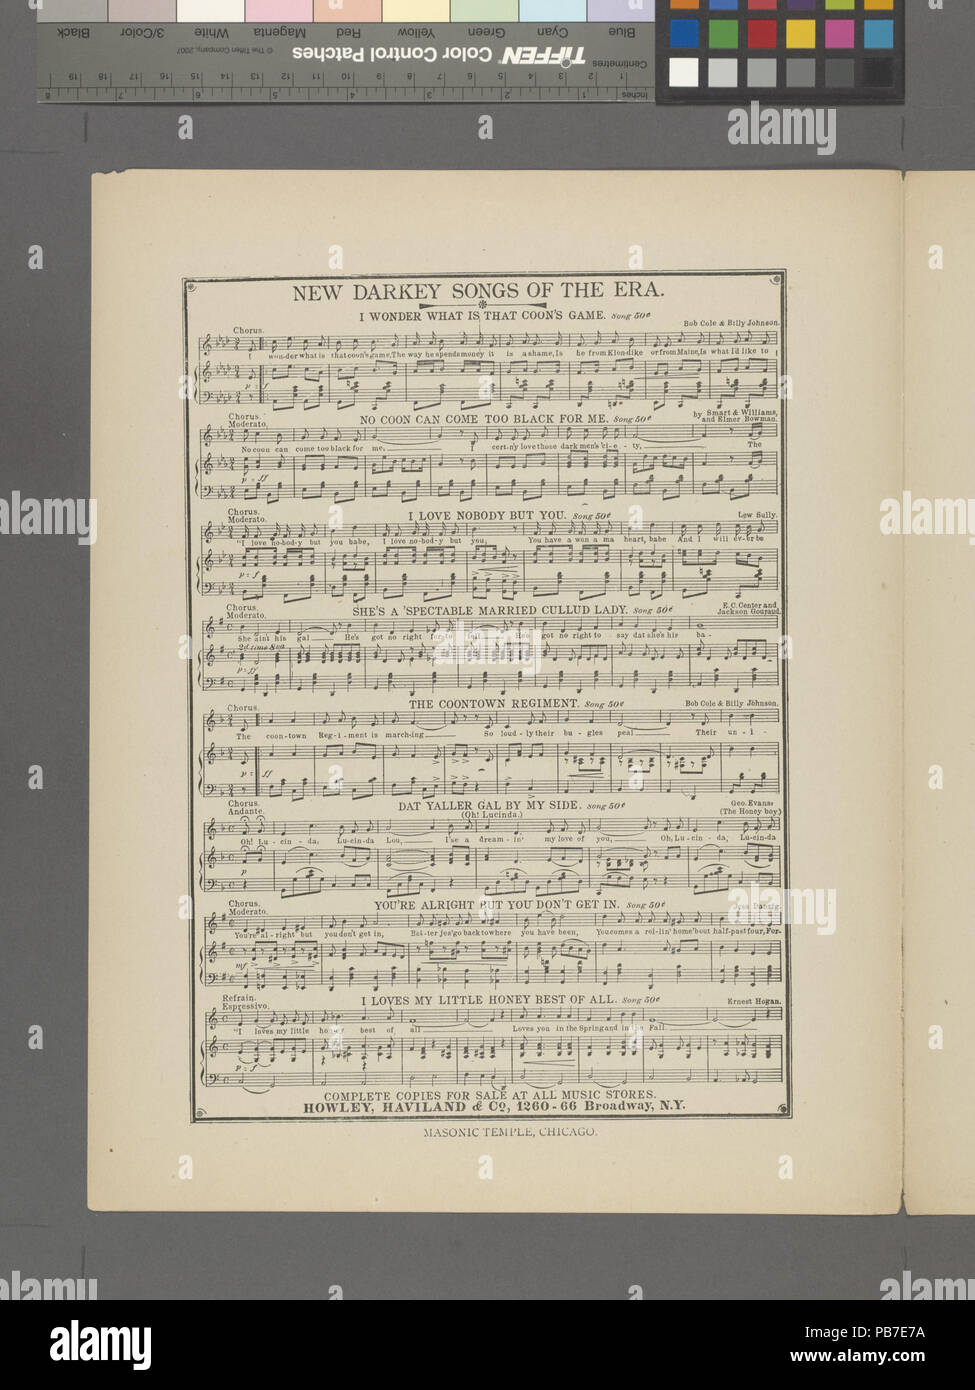 Blue Cyan Green Yellow Red Magenta White 3/Color Black
TIFFEN® Color Control Patches © The Tiffen Company, 2007
Centimetres
Inches
NEW DARKEY SONGS OF THE ERA.
I WONDER WHAT IS THAT COON'S GAME. Song 50¢
Bob Cole & Billy Johnson.
Chorus.
I won-der what is that coon's game, The way he spends money it is a shame, Is he from Klon-dike or from Maine, Is what I'd like to
p-f
NO COON CAN COME TOO BLACK FOR ME. Song 50¢
by Smart & Williams,
and Elmer Bowman.
Chorus.
Moderato.
No coon can come too black for me, I cert-n'y love those dark men's 'ci-e-ty, The
p-ff
I LOVE NOBODY BUT YOU. Song 50¢
Lew Sully.
Chorus.
Moderato.
"I love no-bod-y but you babe, I love no-bod-y but you, You have a won a ma heart, babe And I will ev-er be
p-f
SHE'S A 'SPECTABLE MARRIED CULLUD LADY. Song 50¢
E.C. Center and
Jackson Gouraud.
Chorus.
Moderato.
She ain't his gal He's got no right for to got no right to say dat she's his ba-
2d time 8va
p-ff
THE COONTOWN REGIMENT. Song 50¢
Bob Cole & Billy Johnson.
Chorus.
The coon-town Reg-i-ment is march-ing So loud-ly their bu-gles peal Their un-i-
p-ff
DAT YALLER GAL BY MY SIDE. Song 50¢
(Oh! Lucinda.)
Geo. Evans.
(The Honey boy)
Chorus.
Andante.
Oh! Lu-cin-da, Lu-cin-da Lou, I'se a dream-in' my love of you, Oh, Lu-cin-da, Lu-cin-da
p
YOU'RE ALRIGHT BUT YOU DON'T GET IN. Song 50¢
Jess Danzig.
Chorus.
Moderato.
You're al-right but you don't get in, Bet-ter jes' go back to where you have been, You comes a rol-lin' home 'bout half-past four, For-
mf
I LOVES MY LITTLE HONEY BEST OF ALL. Song 50¢
Ernest Hogan.
Refrain.
Espressivo.
"I loves my little honey best of all Loves you in the Spring and in the Fall
p-f
COMPLETE COPIES FOR SALE AT ALL MUSIC STORES.
HOWLEY, HAVILAND & CO, 1260-66 Broadway, N.Y.
MASONIC TEMPLE, CHICAGO.
alamy
alamy stock photo
PB7E7A
www.alamy.com